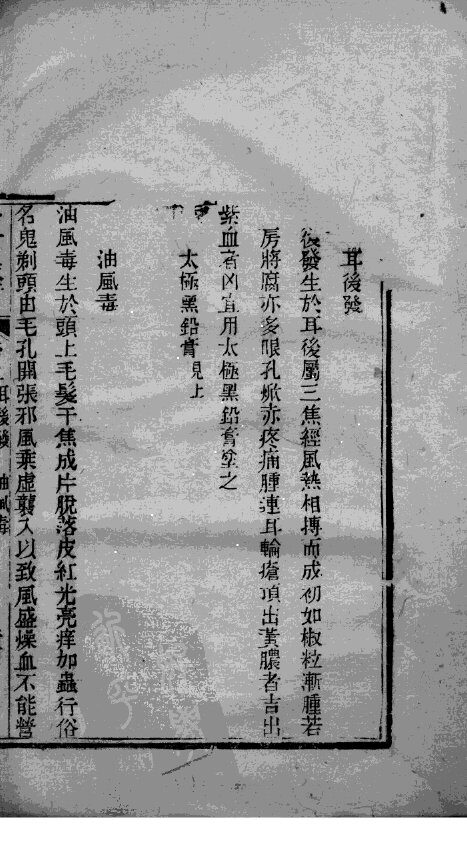 耳後發
後發生於耳後屬三焦經風熱相搏而成初如椒粒漸腫若
房將腐亦多眼孔焮赤疼痛腫連耳輪瘡頂出黃膿者吉出
紫血者凶宜用太極黑鉛膏塗之
太極黑鉛膏見上
油風毒
油風毒生於頭上毛髮干焦成片脫落皮紅光亮痒加蟲行俗
名鬼剃頭由毛孔開張邪風乘虛襲入以致風盛燥血不能營
耳後發 油風毒